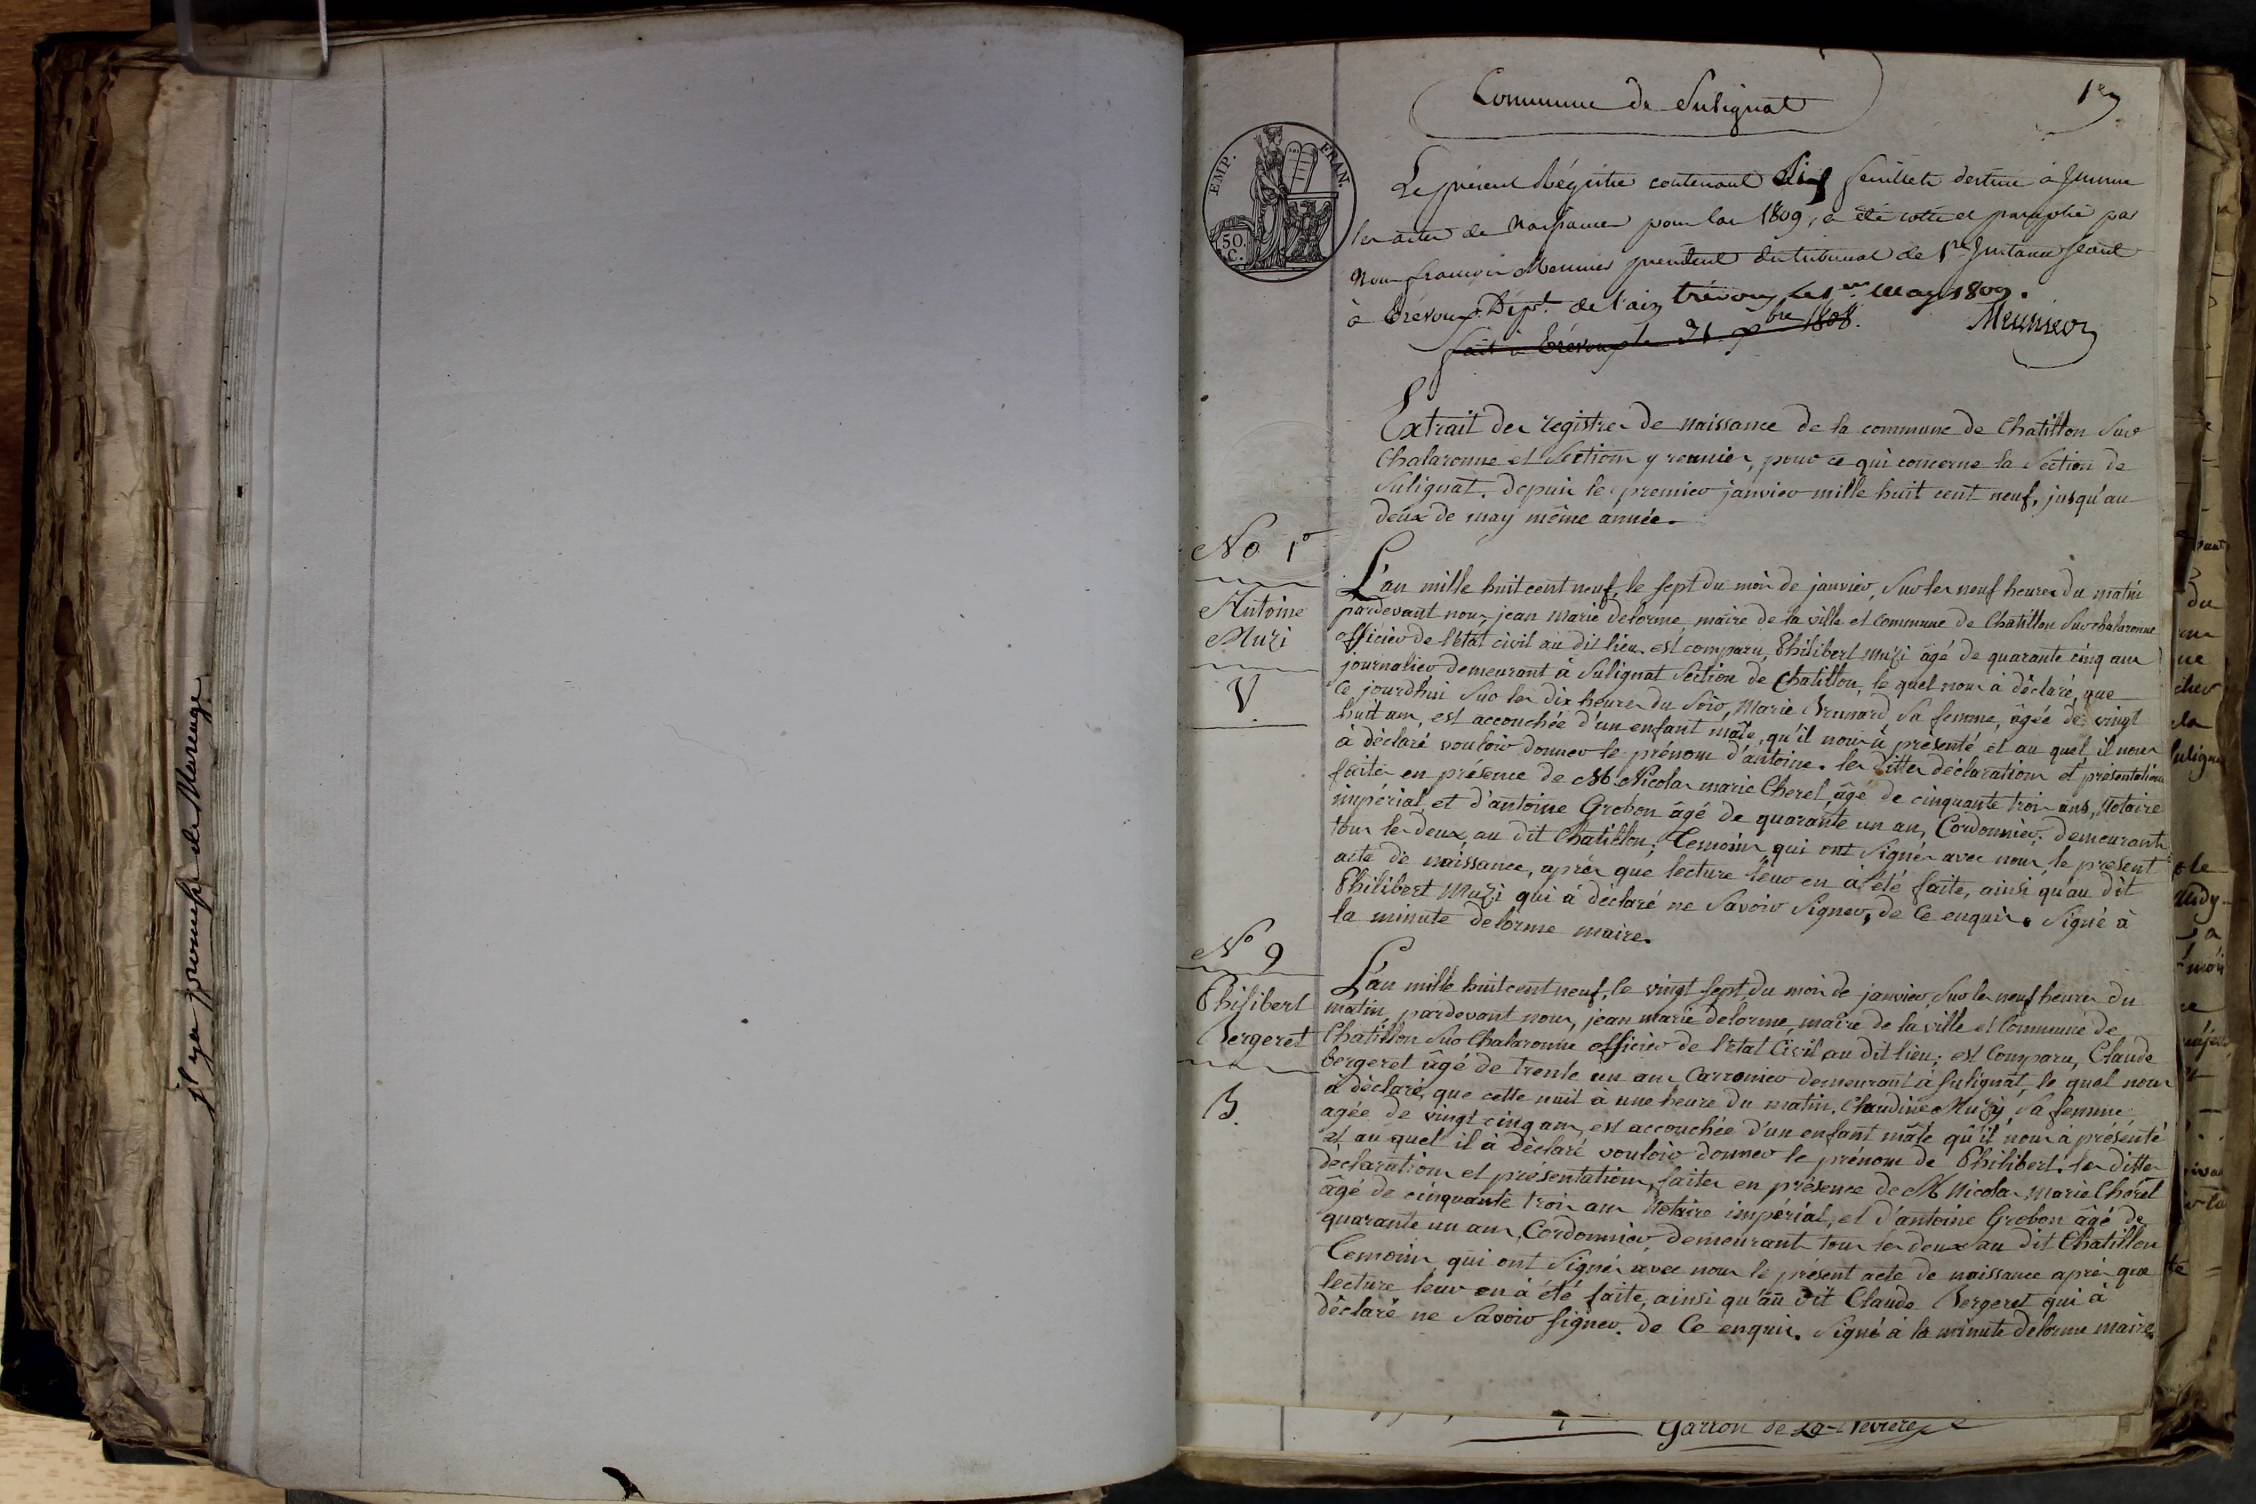 Commune de Sulignat
1er
EMP. FRAN.
50.
C.
Le présent Régistre contenant Six feuillets destiné à Inscrire
les actes de Naissances pour l'an 1809, a été cotté et paraphé par
Nous françois Meunier president du tribunal de 1re Instance séant
à trévoux Dépt. de l'ain trévoux, le 1er may 1809.
fait à trévoux le 31 Xbre 1808.
Meunier
Extrait des registres de naissance de la commune de Chatillon Sur
Chalaronne et Sections y reunies, pour ce qui concerne la Section de
Sulignat. depuis le premier janvier mille huit cent neuf, jusqu'au
deux de may même année.
No 1er
Antoine
Muzi
V.
L'an mille huit cent neuf, le sept du mois de janvier, Sur les neuf heures du matin
pardevant nous, jean marie delorme, maire de la ville et commune de Chatillon Sur chalaronne
officier de l'état civil au dit lieu. est comparu, Philibert muzi âgé de quarante cinq ans
journalier, demeurant à Sulignat Section de Chatillon, le quel nous à déclaré, que
ce jourdhui Sur les dix heures du Soir, Marie Brunard, Sa femme, âgée de vingt
huit ans, est accouchée d'un enfant mâle, qu'il nous à présenté et au quel il nous
à déclaré vouloir donner le prénom d'antoine. les dittes déclarations et présentations
faites en présence de M. Nicolas marie Cheret, âgé de cinquante trois ans, Notaire
impérial, et d'antoine Grobon âgé de quarante un an, Cordonnier, demeurants
tous les deux, au dit Chatillon; Temoins qui ont Signés avec nous, le present
acte de naissance, après que lecture leur en a été faite, ainsi qu'au dit
Philibert Muzi qui à déclaré ne Savoir Signer, de Ce enquis. Signé à
la minute delorme maire.
No 9
Philibert
Bergeret
B.
L'an mille huit cent neuf, le vingt sept, du mois de janvier, Sur les neuf heures du
matin, pardevant nous, jean marie delorme, maire de la ville et Commune de
Chatillon Sur Chalaronne officier de l'état Civil au dit lieu; est Comparu, Claude
bergeret âgé de trente un ans Carronier demeurant à Sulignat, le quel nous
à déclaré, que cette nuit à une heure du matin, Claudine Muzy, Sa femme,
agée de vingt cinq ans, est accouchée d'un enfant mâle qu'il nous à présenté
et au quel il à déclaré vouloir donner le prénom de Philibert. les dittes
déclarations et présentations, faites en présence de M Nicolas Marie Cheret
âgé de cinquante trois ans Notaire impérial, et d'antoine Grobon âgé de
quarante un ans, Cordonnier demeurants tous les deux au dit Chatillon
Temoins qui ont Signés avec nous le présent acte de naissance après que
lecture leur en à été faite, ainsi qu'au dit Claude Bergeret qui à
déclaré ne Savoir signer. de Ce enquis. Signé à la minute delorme maire.
Garron de La
il y a promesse de Mariage